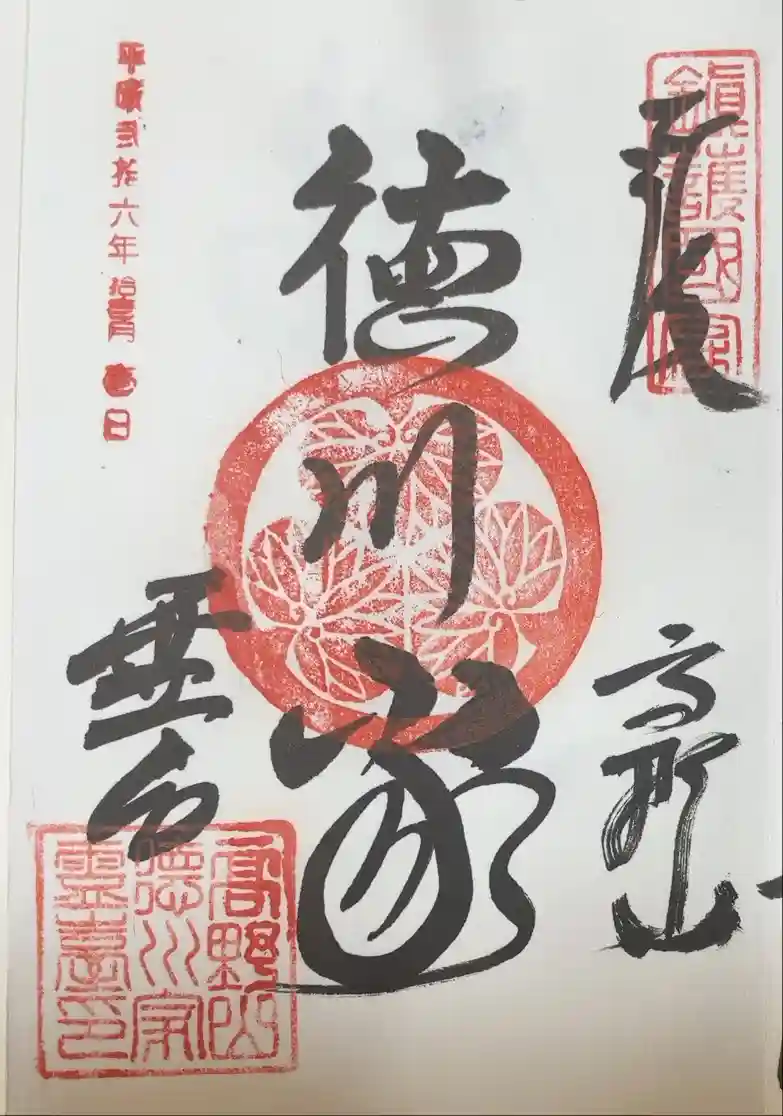 鎮護國家
高野山
徳川家
霊台
高野山
徳川家
霊臺印
平成弐拾六年拾壹月壹日